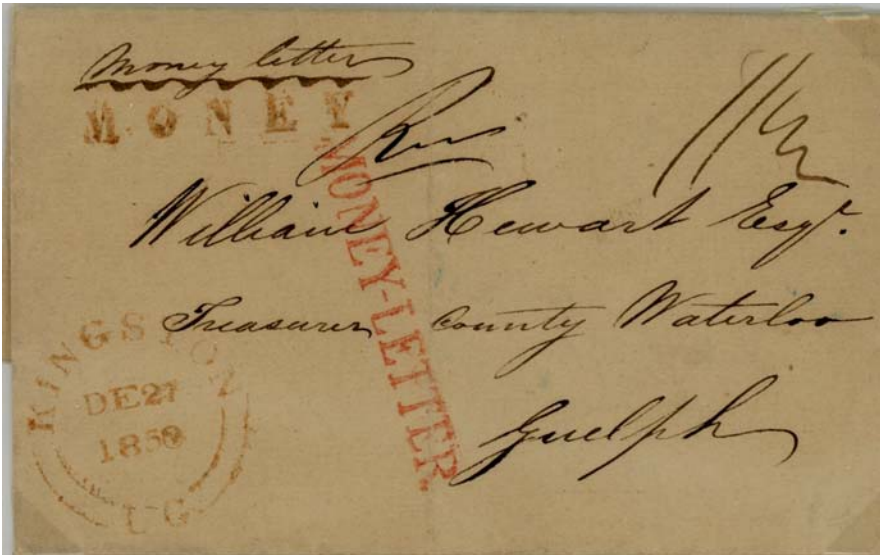 Money letter
MONEY
MONEY-LETTER.
William Hewart Esqr.
Treasurer County Waterloo
Guelph
KINGSTON
DE 27
1850
U.C